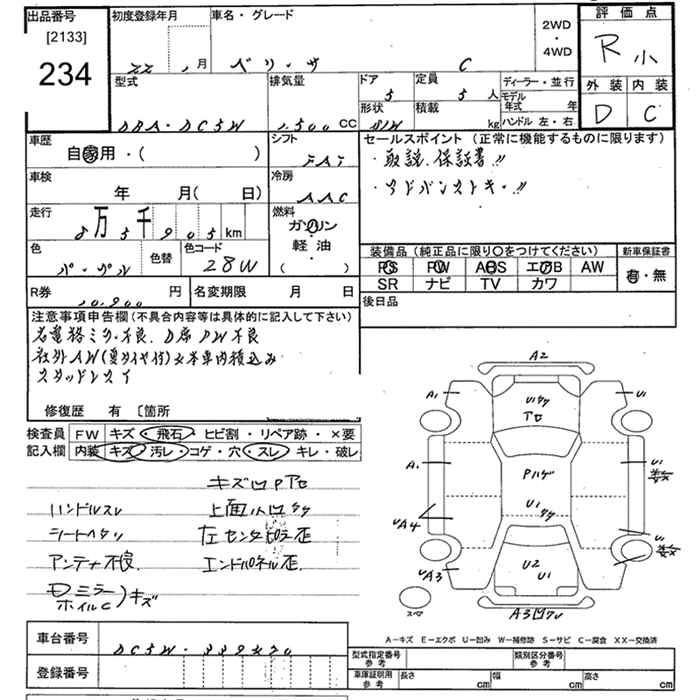 出品番号
[2133]
234
初度登録年月
22 . 月
車名・グレード
ベリーサ C
2WD
・
4WD
評価点
R 小
外装 内装
D C
型式
DBA-DC5W
排気量
1,500 CC
ドア
5
定員
5 人
形状
積載
kg
ディーラー・並行
モデル
年式 年
ハンドル 左・右
車歴
自家用・( )
シフト
FAT
セールスポイント (正常に機能するものに限ります)
・取説.保証書!!
車検
年 月( 日)
冷房
AAC
走行
8万5千905km
燃料
ガソリン
・
軽油
( )
色
パープル
色替
色コード
28W
装備品 (純正品に限り○をつけてください)
PS PW ABS エアB AW
SR ナビ TV カワ
新車保証書
有・無
R券
10,900 円
名変期限 月 日
後日品
注意事項申告欄(不具合内容等は具体的に記入して下さい)
右電格ミラー不良. D席PW不良
社外AW(夏タイヤ付)4本車内積込み
スタッドレスタイ
修復歴 有 〔箇所
検査員
記入欄
FW キズ・飛石・ヒビ割・リペア跡・×要
内装 キズ・汚レ・コゲ・穴・スレ・キレ・破レ
キズ凹Pアセ
ハンドルスレ 上面小凹ササ
シートヘタリ 左センターピラ歪
アンテナ不良 エンドパネル歪.
ミラー
ホイルC)キズ
A2
A1
U1ササ
アセ
U1
A1
Pハゲ
U1
U1
ササ
A4
U1
A3
U2
U1
スペア
A3凹ワレ
A−キズ E−エクボ U−凹み W−補修跡 S−サビ C−腐食 XX−交換済
車台番号
DC5W-
登録番号
型式指定番号
参考
類別区分番号
参考
車庫証明用
参考
長さ cm 幅 cm 高さ cm